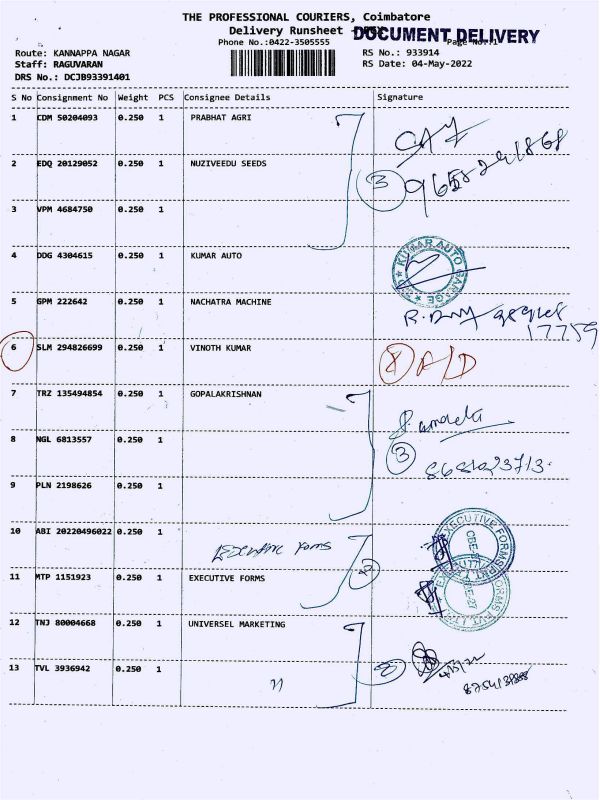 THE PROFESSIONAL COURIERS, Coimbatore
Delivery Runsheet
DOCUMENT DELIVERY
Phone No.:0422-3505555
Route: KANNAPPA NAGAR
RS No.: 933914
Staff: RAGUVARAN
RS Date: 04-May-2022
DRS No.: DCJB93391401
S No Consignment No Weight PCS Consignee Details Signature
1 CDM 50204093 0.250 1 PRABHAT AGRI
2 EDQ 20129052 0.250 1 NUZIVEEDU SEEDS
3
3 VPM 4684750 0.250 1
4 DDG 4304615 0.250 1 KUMAR AUTO
KUMAR AUTO GARAGE
5 GPM 222642 0.250 1 NACHATRA MACHINE
17759
6 SLM 294826699 0.250 1 VINOTH KUMAR
A/D
7 TRZ 135494854 0.250 1 GOPALAKRISHNAN
8 NGL 6813557 0.250 1
3
9 PLN 2198626 0.250 1
10 ABI 20220496022 0.250 1
Executive Forms
EXECUTIVE FORMS PVT. LTD
11 MTP 1151923 0.250 1 EXECUTIVE FORMS
12 TNJ 80004668 0.250 1 UNIVERSEL MARKETING
13 TVL 3936942 0.250 1